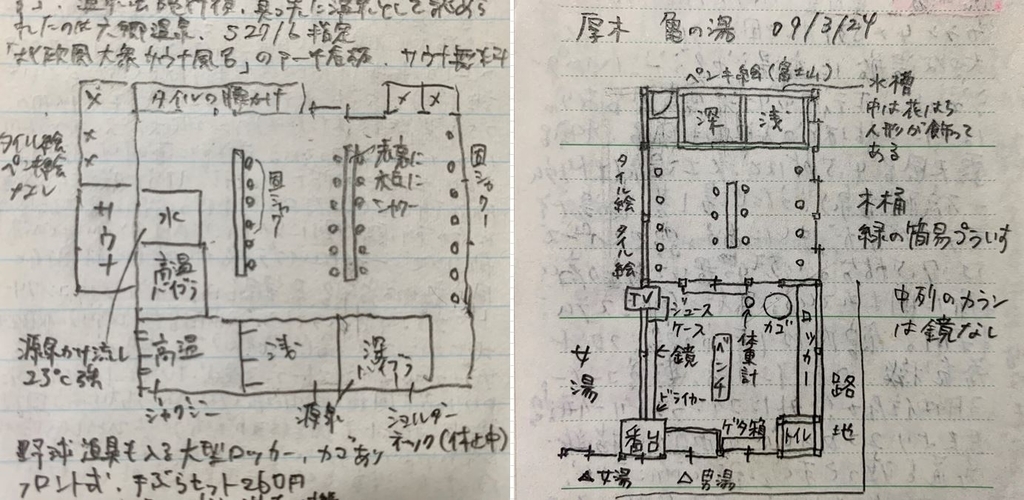 れたのは六郷温泉. S27/6 指定
「北欧風大衆サウナ風呂」のアーチ看板. サウナ無料
タイルの腰かけ
タイル絵
ペンキ絵
なし
サウナ
水
高温
バイブラ
固シャワー
赤幕に
大丘に
シャワー
固シャワー
源泉かけ流し
23℃強
高温
浅
深
バイブラ
ジャグジー
源泉
ショルダー
ネック(休止中)
野球道具も入る大型ロッカー. カゴあり
フロント式. 手ぶらセット260円
厚木 亀の湯 09/3/24
ペンキ絵(富士山)
水槽
中は花はち
人形が飾って
ある
深
浅
タイル絵
タイル絵
木桶
緑の簡易プラいす
中列のカラン
は鏡なし
TV
ジュース
ケース
鏡
ベンチ
体重計
カゴ
ロッカー
女湯
路地
ドライヤー
番台
ゲタ箱
トイレ
△女湯
△男湯